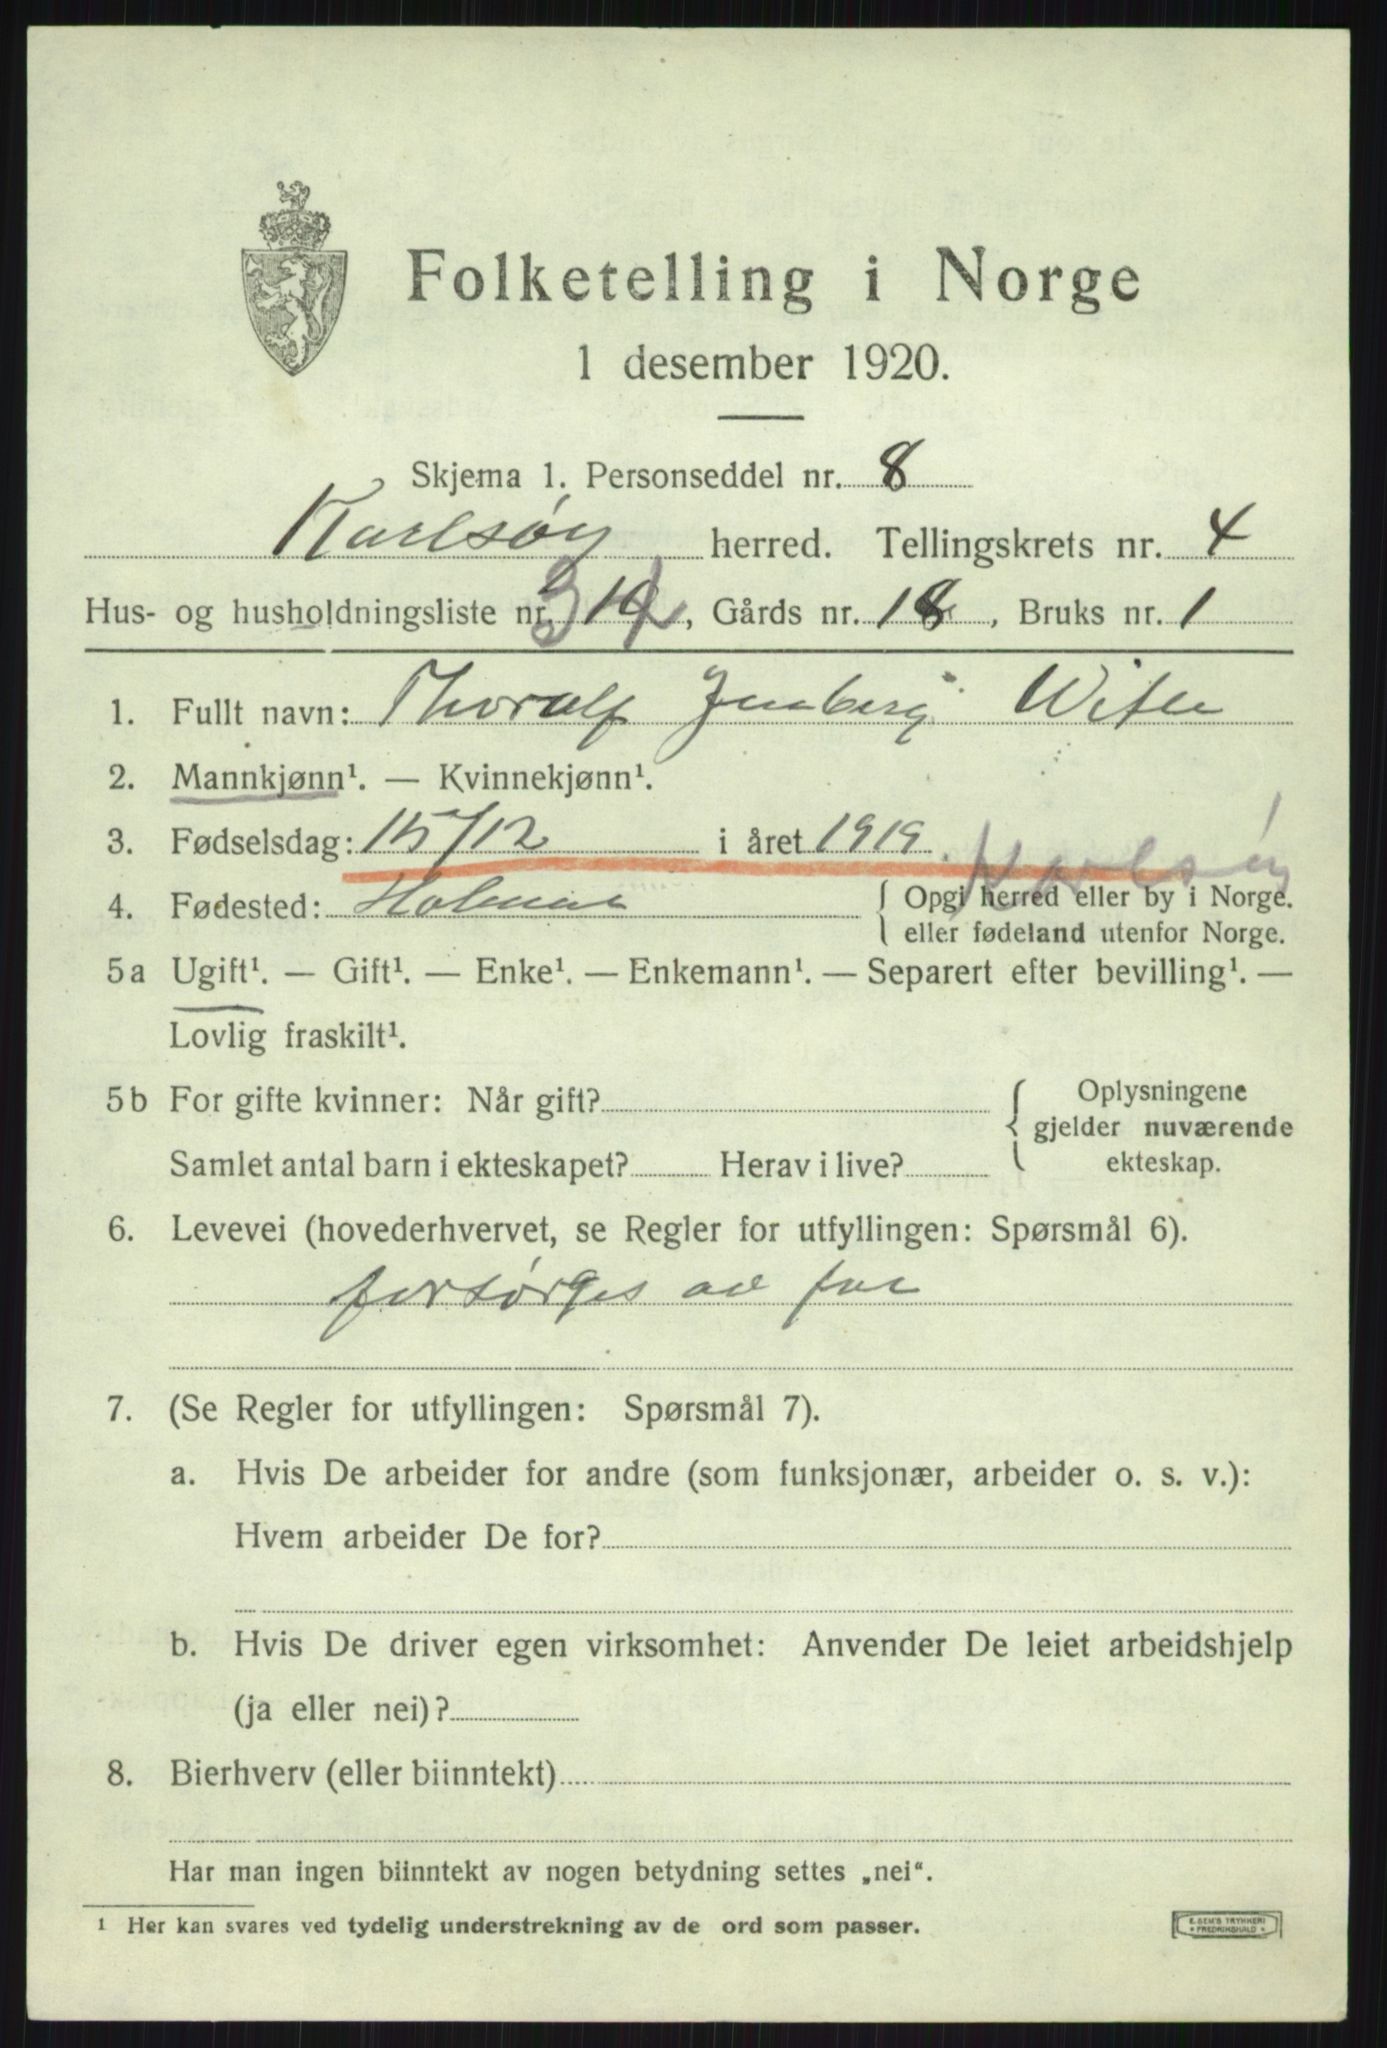 Folketelling i Norge
1 desember 1920.
Skjema 1. Personseddel nr. 8
Karlsøy herred. Tellingskrets nr. 4
Hus- og husholdningsliste nr. , Gårds nr. 18, Bruks nr. 1
1. Fullt navn: Thoralf
2. Mannkjønn¹. — Kvinnekjønn¹.
3. Fødselsdag: 15/12 i året 1919. Karlsöy
4. Fødested: { Opgi herred eller by i Norge.
eller fødeland utenfor Norge.
5a Ugift¹. — Gift¹. — Enke¹. — Enkemann¹. — Separert efter bevilling¹. —
Lovlig fraskilt¹.
5b For gifte kvinner: Når gift? { Oplysningene
gjelder nuværende
Samlet antal barn i ekteskapet? Herav i live? ekteskap.
6. Levevei (hovederhvervet, se Regler for utfyllingen: Spørsmål 6).
forsørges av far
7. (Se Regler for utfyllingen: Spørsmål 7).
a. Hvis De arbeider for andre (som funksjonær, arbeider o. s. v.):
Hvem arbeider De for?
b. Hvis De driver egen virksomhet: Anvender De leiet arbeidshjelp
(ja eller nei)?
8. Bierhverv (eller biinntekt)
Har man ingen biinntekt av nogen betydning settes „nei“.
¹ Her kan svares ved tydelig understrekning av de ord som passer.
E. SEM'S TRYKKERI
FREDRIKSHALD